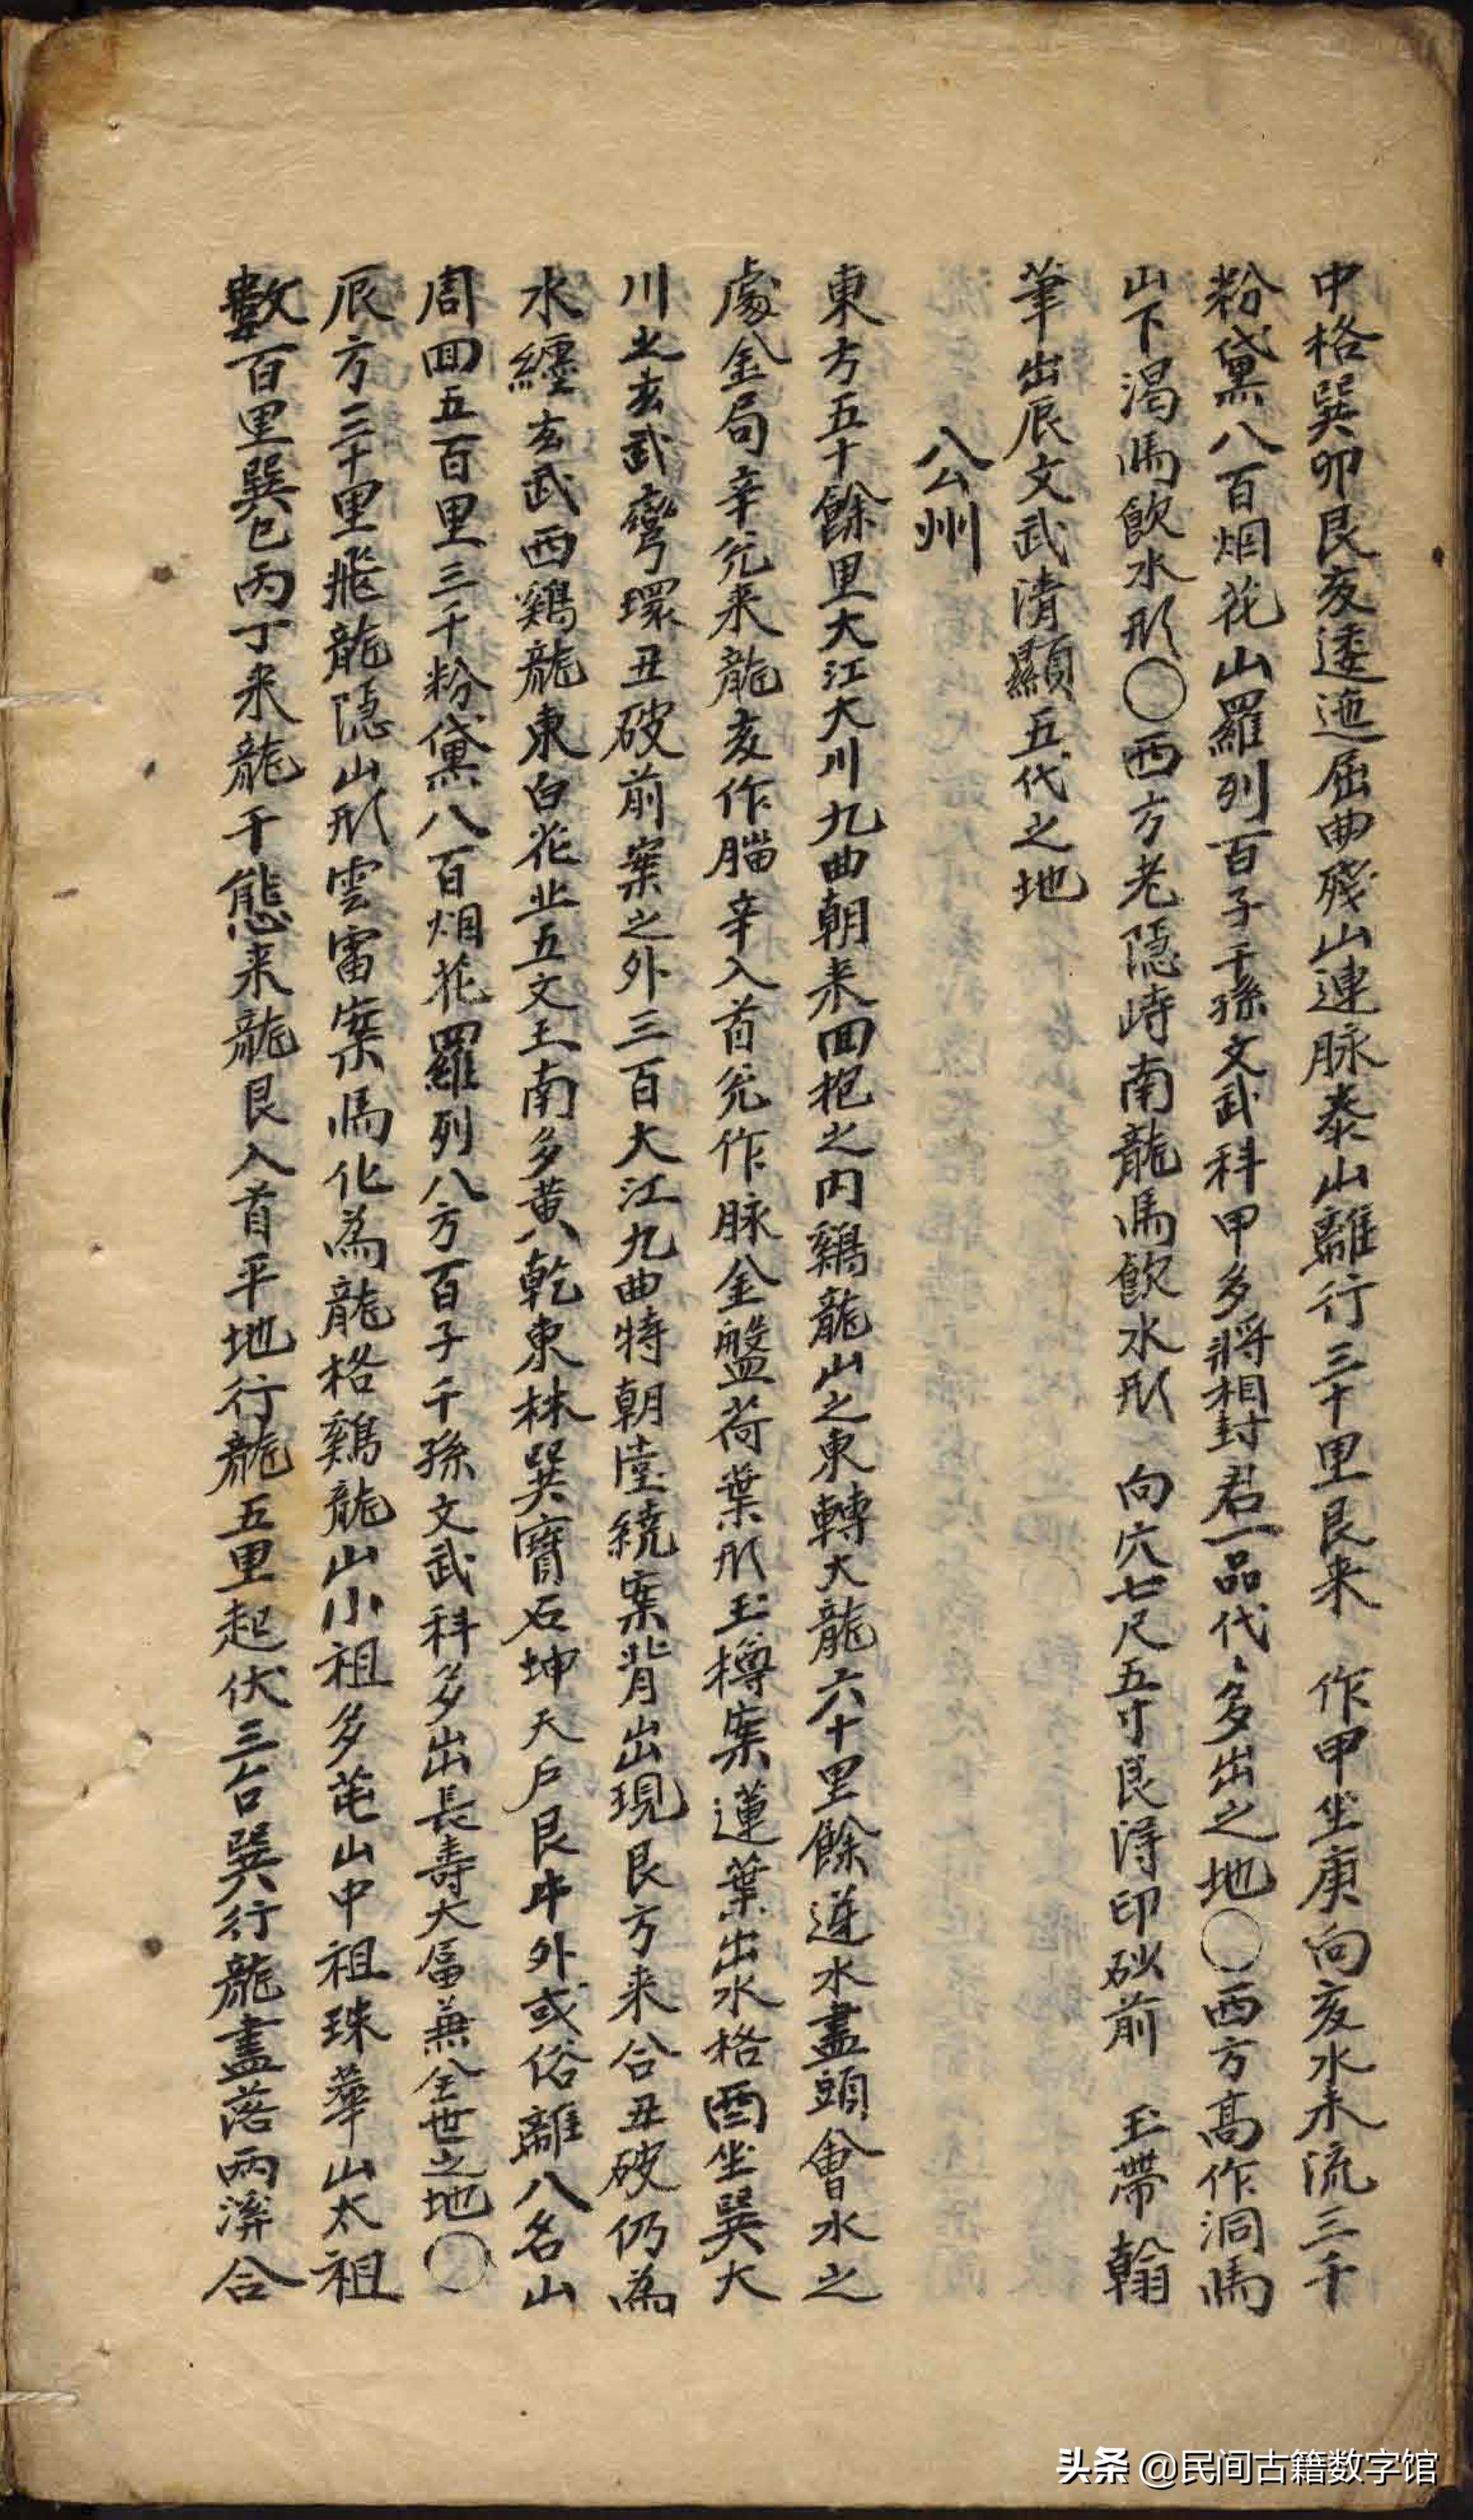 中格巽卯艮亥逶迤屈曲殘山連脉泰山離行三十里艮来　作甲坐庚向亥水来流三千
粉黛八百烟花山羅列百子千孫文武科甲多將相封君一品代〻多出之地〇西方高作洞馬
山下渴馬飮水形〇西方老隱峙南龍馬飮水形　向穴七尺五寸艮淂印砂前　玉帶翰
筆出辰文武清顯五代之地
公州
東方五十餘里大江大川九曲朝来回抱之内鷄龍山之東轉大龍六十里餘逆水盡頭會水之
處金局辛兊来龍亥作腦辛入首兊作脉金盤荷葉形玉樽案蓮葉出水格酉坐巽大
川之玄武彎環丑破前案之外三百大江九曲特朝陸繞案背出現艮方来合丑破仍為
水纏玄武西鷄龍東白花北五文王南多黄八乾東林巽寳石坤天戶艮牛外或俗離八名山
周回五百里三千粉黛八百烟花羅列八方百子千孫文武科多出長壽大富兼全世之地〇
辰方三十里飛龍隱山形雲雷案馬化為龍格鷄龍山小祖多芚山中祖珠華山太祖
數百里巽巳丙丁来龍千態来龍艮入首平地行龍五里起伏三台巽行龍盡落兩溪合
头条 @民间古籍数字馆